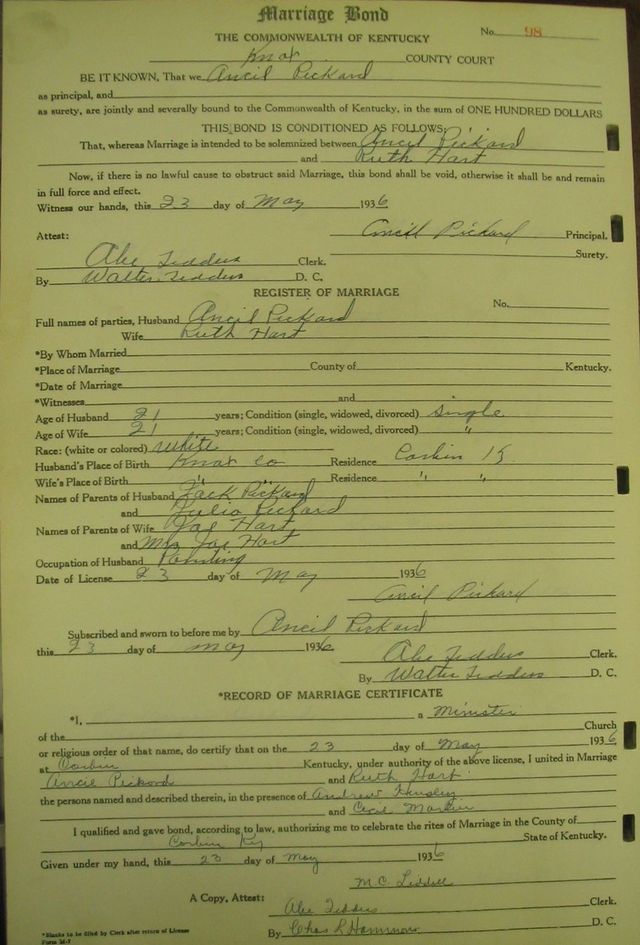 Marriage Bond
THE COMMONWEALTH OF KENTUCKY
No. 98
Knox COUNTY COURT
BE IT KNOWN, That we Ancil Pickard
as principal, and
as surety, are jointly and severally bound to the Commonwealth of Kentucky, in the sum of ONE HUNDRED DOLLARS
THIS BOND IS CONDITIONED AS FOLLOWS:
That, whereas Marriage is intended to be solemnized between Ancil Pickard
and Ruth Hart
Now, if there is no lawful cause to obstruct said Marriage, this bond shall be void, otherwise it shall be and remain
in full force and effect.
Witness our hands, this 23 day of May 1936
Ancil Pickard Principal.
Attest:
Surety.
Abe Clerk.
By Walter D. C.
REGISTER OF MARRIAGE
No.
Full names of parties, Husband Ancil Pickard
Wife Ruth Hart
*By Whom Married
*Place of Marriage County of Kentucky.
*Date of Marriage
*Witnesses and
Age of Husband 21 years; Condition (single, widowed, divorced) Single
Age of Wife 21 years; Condition (single, widowed, divorced) "
Race: (white or colored) white
Husband's Place of Birth Knox Co Residence Corbin Ky
Wife's Place of Birth " " Residence " "
Names of Parents of Husband Jack Pickard
and Julia Pickard
Names of Parents of Wife Joe Hart
and Mrs Joe Hart
Occupation of Husband Painting
Date of License 23 day of May 1936
Ancil Pickard
Subscribed and sworn to before me by Ancil Pickard
this 23 day of May 1936
Abe Clerk.
By Walter D. C.
*RECORD OF MARRIAGE CERTIFICATE
*I, a Minister
of the Church
or religious order of that name, do certify that on the 23 day of May 1936
at Corbin Kentucky, under authority of the above license, I united in Marriage
Ancil Pickard and Ruth Hart
the persons named and described therein, in the presence of Andrew Hensley
and Cecil
I qualified and gave bond, according to law, authorizing me to celebrate the rites of Marriage in the County of
Corbin Ky State of Kentucky.
Given under my hand, this 23 day of May 1936
M. C.
A Copy, Attest:
Abe Clerk.
By Chas R D. C.
*Blanks to be filed by Clerk after return of License
Form M-7